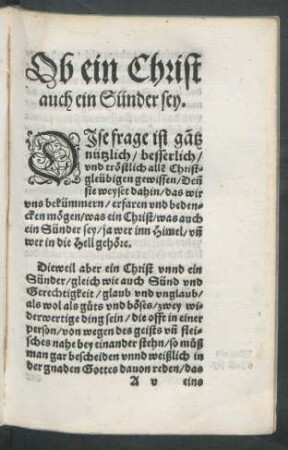 Ob ein Christ
auch ein Sünder sey.
DIse frage ist gãtz
nützlich / besserlich /
vnd tröstlich allẽ Christ-
gleübigen gewissen / Deñ
sie weyset dahin / das wir
vns bekümmern / erfaren vnd beden-
cken mögen / was ein Christ / was auch
ein Sünder sey / ja wer inn Himel / vñ
wer in die Hell gehöre.
Dieweil aber ein Christ vnnd ein
Sünder / gleich wie auch Sünd vnd
Gerechtigkeit / glaub vnd vnglaub /
als wol als gůts vnd böses / zwey wi-
derwertige ding sein / die offt in einer
person / von wegen des geists vñ flei-
sches nahe bey einander stehn / so můß
man gar bescheiden vnnd weißlich in
der gnaden Gottes dauon reden / das
A v eins